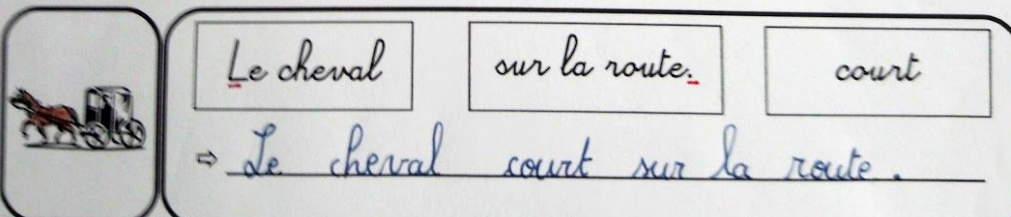 Le cheval sur la route. court
⇨ Le cheval court sur la route.